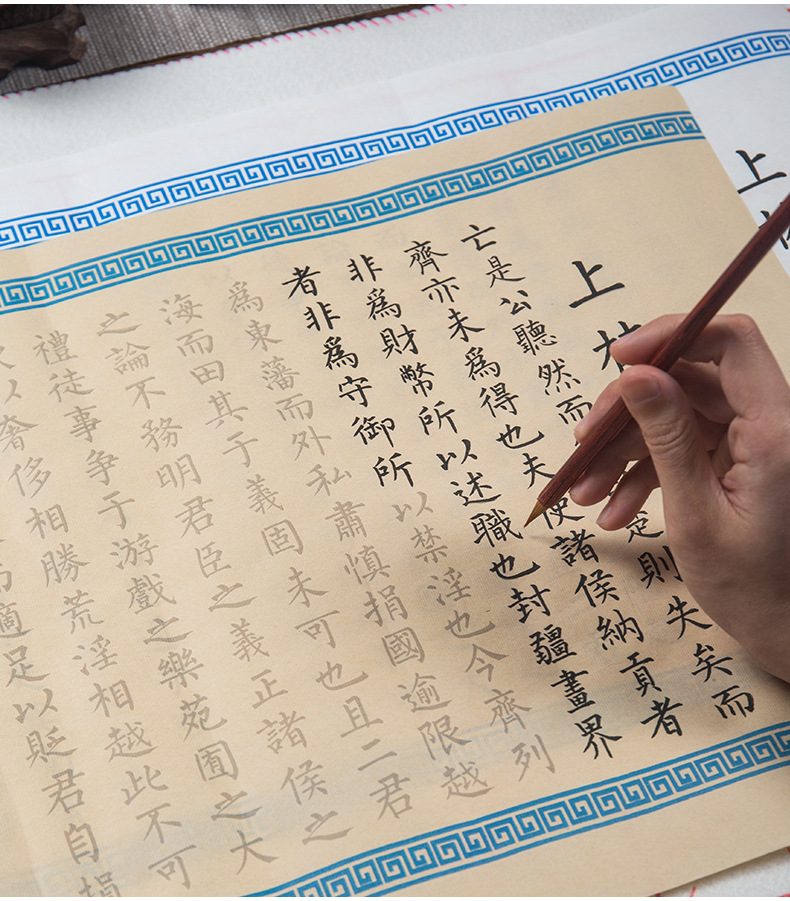 上
上
亡是公聽然而則失矣而
齊亦未為得也夫使諸侯納貢者
非為財幣所以述職也封疆畫界
者非為守御所以禁淫也今齊列
為東藩而外私肅慎捐國逾限越
海而田其于義固未可也且二君
之論不務明君臣之義正諸侯之
禮徒事争于游戲之樂苑囿之大
以奢侈相勝荒淫相越此不可
適足以貶君自損